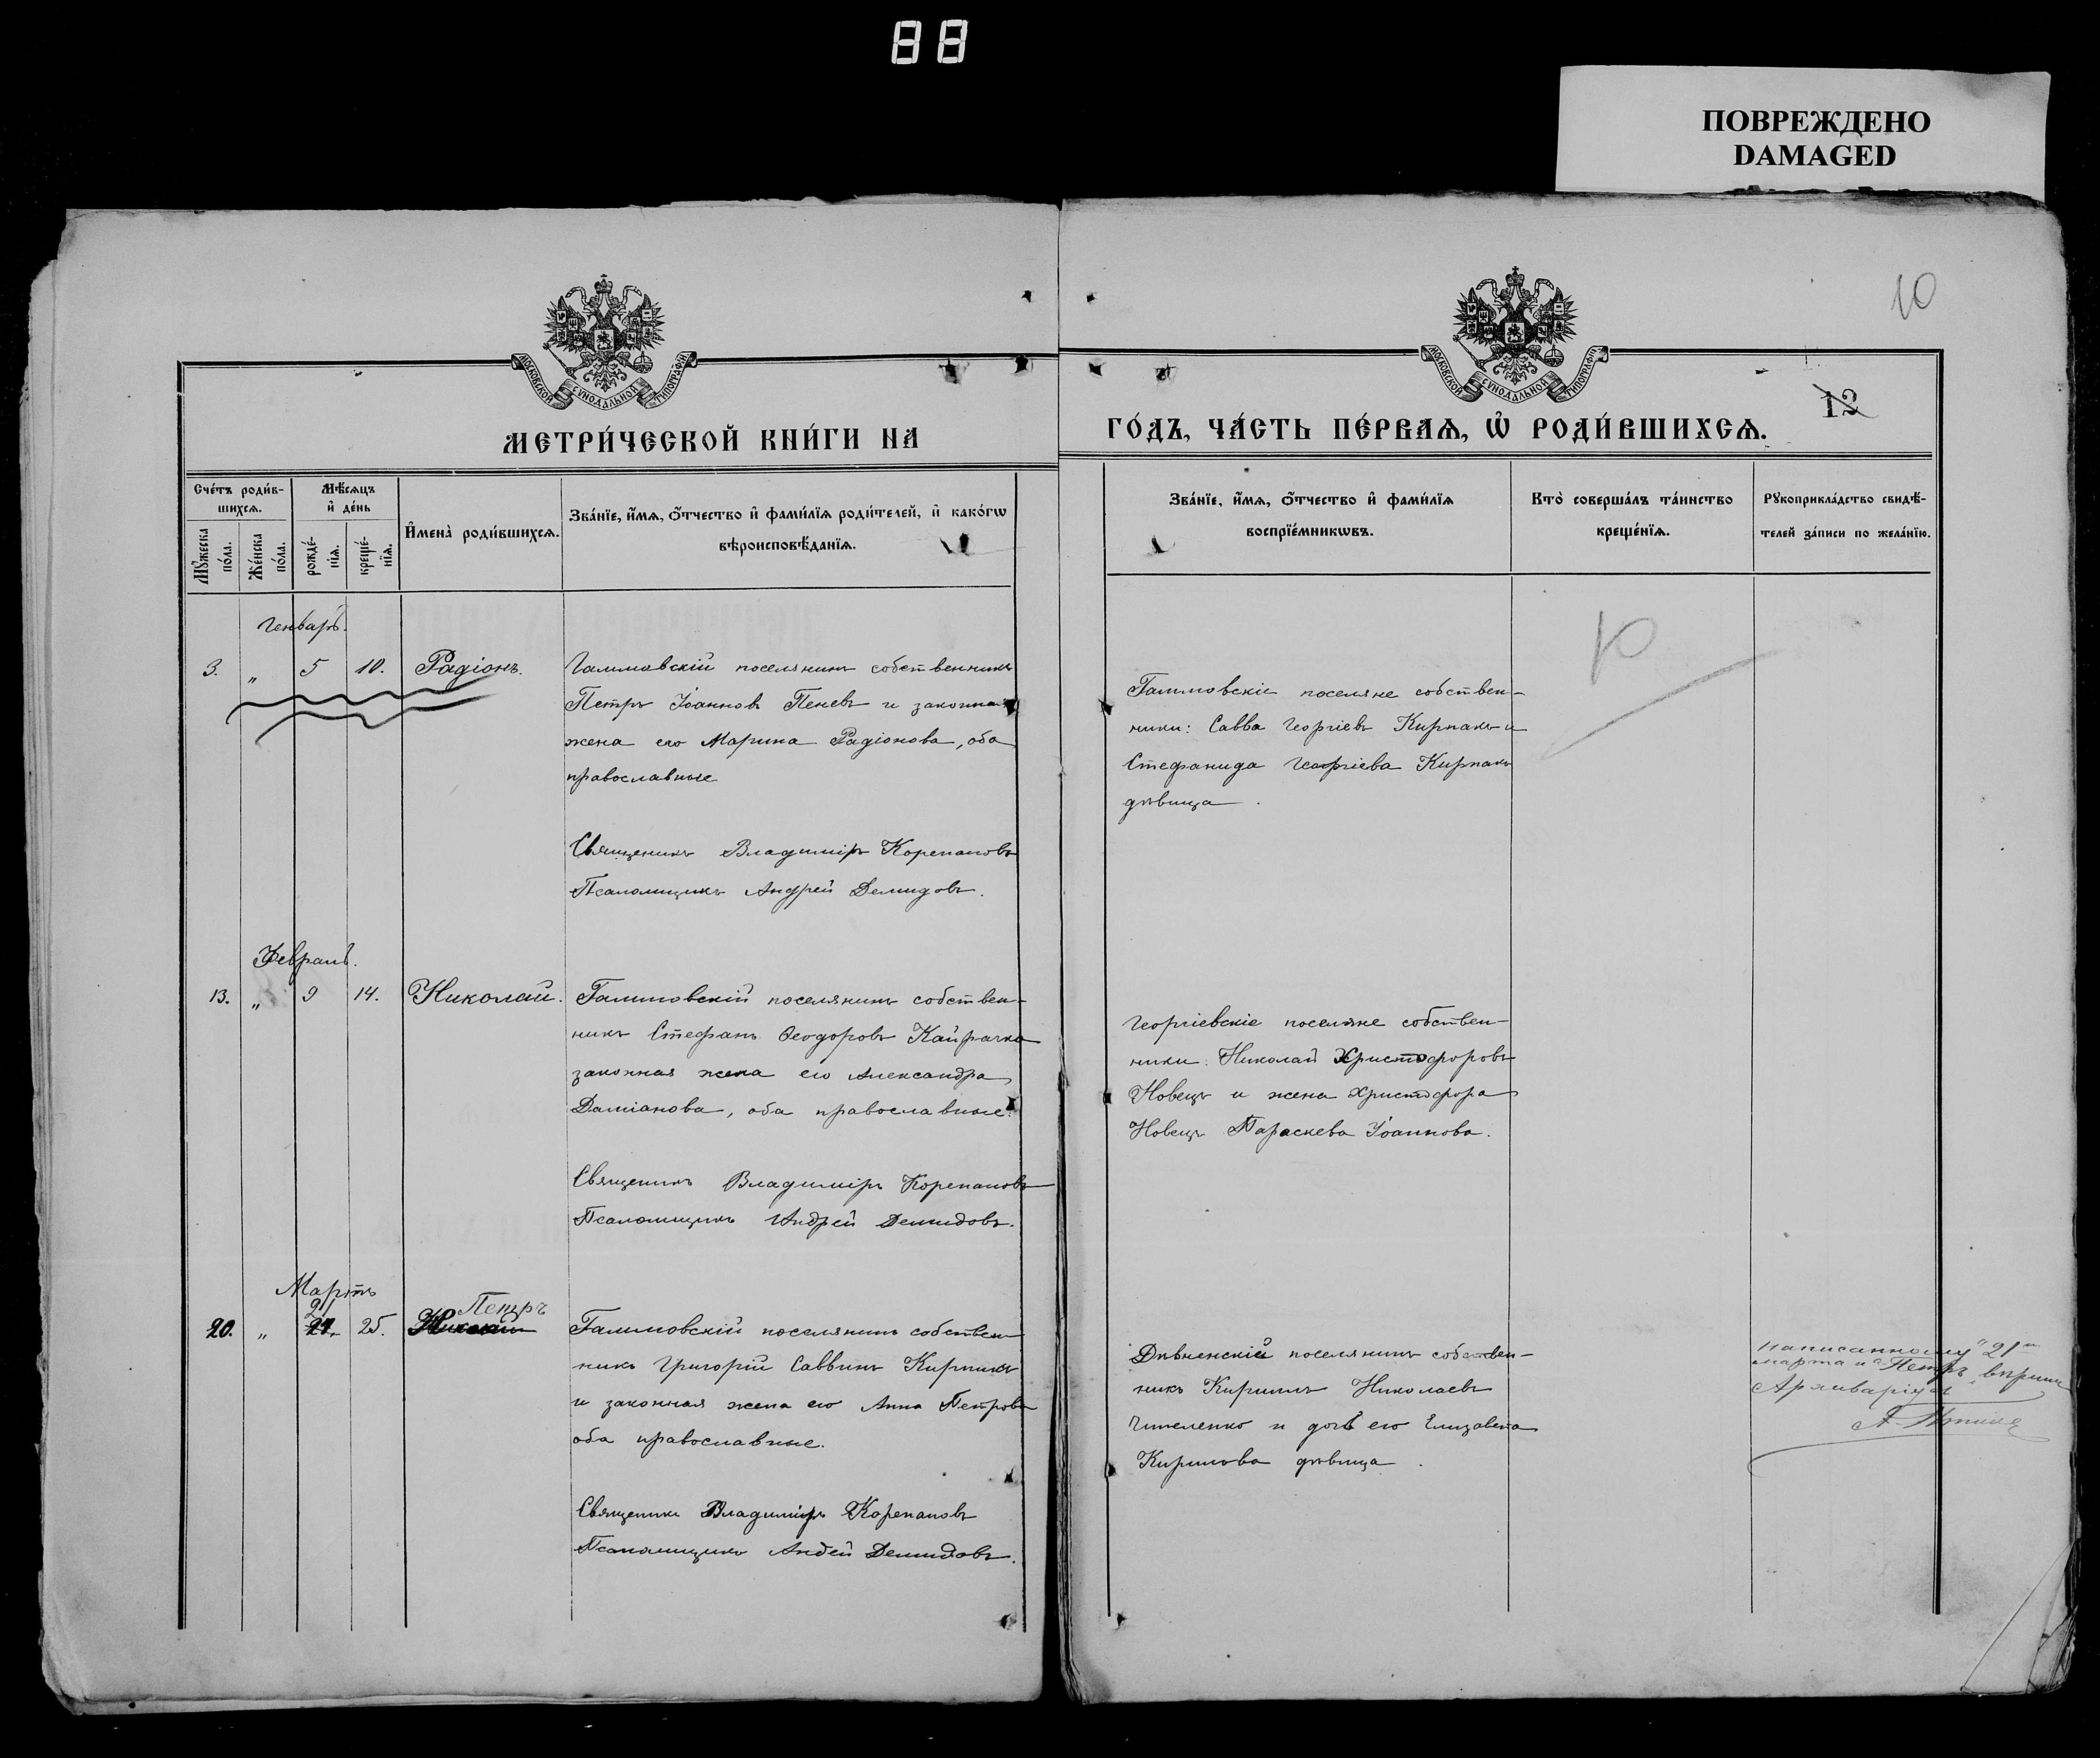 88
ПОВРЕЖДЕНО
DAMAGED
10
МОСКОВСКОЙ СѴНОДАЛЬНОЙ ТИПОГРАФІИ
МОСКОВСКОЙ СѴНОДАЛЬНОЙ ТИПОГРАФІИ
12
МЕТРИ́ЧЕСКОЙ КНИ́ГИ НА
ГО́ДЪ, ЧА́СТЬ ПЕ́РВАѦ, Ѽ РОДИ́ВШИХСѦ.
Сче́тъ роди́в-
шихсѧ.
Мѣ́сѧцъ
и҆ де́нь
Мꙋ́жеска
по́ла.
Же́нска
по́ла.
рожде́-
нїѧ.
креще́-
нїѧ.
И҆мена̀ роди́вшихсѧ.
Зва́нїе, и҆́мѧ, ѻ҆́тчество и҆ фами́лїѧ роди́телей, и҆ како́гѡ
вѣроисповѣ́данїѧ.
Зва́нїе, и҆́мѧ, ѻ҆́тчество и҆ фами́лїѧ
воспрїе́мникѡвъ.
Кто̀ соверша́лъ та́инство
креще́нїѧ.
Рꙋкоприкла́дство свидѣ́-
телей за́писи по жела́нїю.
Генварь.
3. " 5 10. Радіонъ.
Галмовскій поселянинъ собственникъ
Петръ Іоанновъ Пеневъ и законная
жена его Марина Радіонова, оба
православные
Священикъ Владиміръ Корепановъ
Псаломщикъ Андрей Демидовъ.
Галмовскіе поселяне собствен-
ники: Савва Георгіевъ Кирпакъ и
Стефанида Георгіева Кирпакъ
дѣвица.
10
Февраль.
13. " 9 14. Николай.
Галмовскій поселянинъ собствен-
никъ Стефанъ Ѳеодоровъ Кайрачка
законная жена его Александра
Даміанова, оба православные.
Священикъ Владиміръ Корепановъ
Псаломщикъ Андрей Демидовъ.
Георгіевскіе поселяне собствен-
ники: Николай Христофоровъ
Новецъ и жена Христофора
Новецъ Параскева Іоаннова.
Мартъ
21 Петръ
20. " 24. 25. Николай
Галмовскій поселянинъ собствен
никъ Григорій Саввинъ Кирпикъ
и законная жена его Анна Петрова
оба православные.
Священикъ Владиміръ Корепановъ
Псаломщикъ Андей Демидовъ.
Дивненскій поселянинъ собствен-
никъ Кирилъ Николаевъ
и дочь его Елизавета
Кирилова дѣвица.
написанному "21"
марта и "Петръ" вѣрить
Архиваріусъ